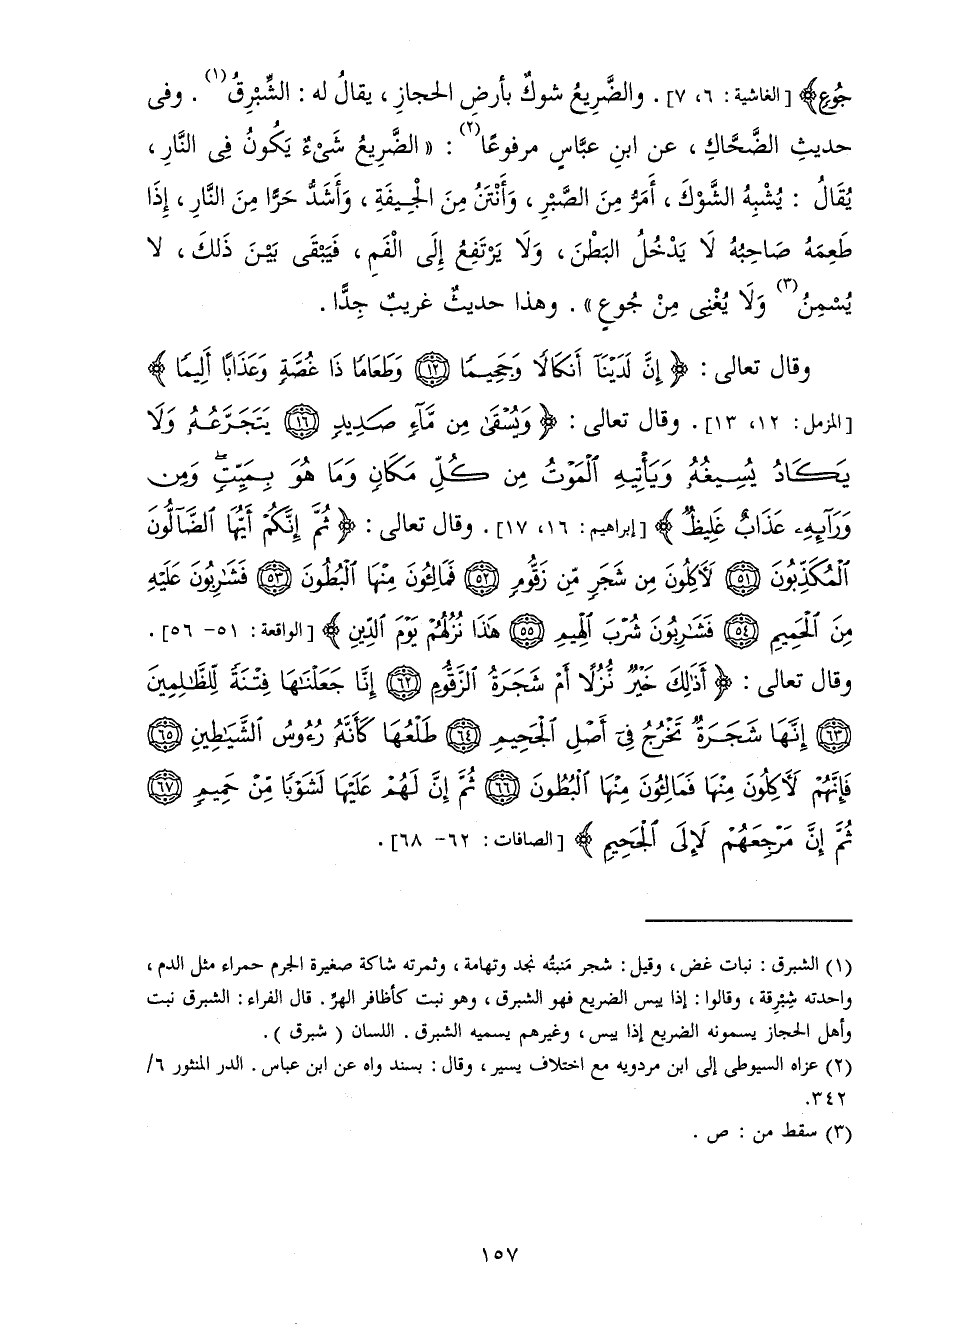 جُوعٍ﴾ [الغاشية: ٦، ٧]. والضَّرِيعُ شوكٌ بأرضِ الحجازِ، يقالُ له: الشِّبْرِقُ(١). وفى
حديثِ الضَّحَّاكِ، عن ابنِ عبَّاسٍ مرفوعًا(٢): «الضَّرِيعُ شَىْءٌ يَكُونُ فِى النَّارِ،
يُقَالُ: يُشْبِهُ الشَّوْكَ، أَمَرُّ مِنَ الصَّبْرِ، وَأَنْتَنُ مِنَ الْجِيفَةِ، وَأَشَدُّ حَرًّا مِنَ النَّارِ، إِذَا
طَعِمَهُ صَاحِبُهُ لَا يَدْخُلُ البَطْنَ، وَلَا يَرْتَفِعُ إِلَى الْفَمِ، فَيَبْقَى بَيْنَ ذَلكَ، لا
يُسْمِنُ(٣) وَلَا يُغْنِى مِنْ جُوعٍ». وهذا حديثٌ غريبٌ جِدًّا.
وقال تعالى: ﴿إِنَّ لَدَيْنَآ أَنكَالًا وَجَحِيمًا ١٢ وَطَعَامًا ذَا غُصَّةٍ وَعَذَابًا أَلِيمًا﴾
[المزمل: ١٢، ١٣]. وقال تعالى: ﴿وَيُسْقَىٰ مِن مَّآءٍ صَدِيدٍ ١٦ يَتَجَرَّعُهُۥ وَلَا
يَكَادُ يُسِيغُهُۥ وَيَأْتِيهِ ٱلْمَوْتُ مِن كُلِّ مَكَانٍ وَمَا هُوَ بِمَيِّتٍۖ وَمِن
وَرَآئِهِۦ عَذَابٌ غَلِيظٌ﴾ [إبراهيم: ١٦، ١٧]. وقال تعالى: ﴿ثُمَّ إِنَّكُمْ أَيُّهَا ٱلضَّآلُّونَ
ٱلْمُكَذِّبُونَ ٥١ لَأَكِلُونَ مِن شَجَرٍ مِّن زَقُّومٍ ٥٢ فَمَالِـُٔونَ مِنْهَا ٱلْبُطُونَ ٥٣ فَشَٰرِبُونَ عَلَيْهِ
مِنَ ٱلْحَمِيمِ ٥٤ فَشَٰرِبُونَ شُرْبَ ٱلْهِيمِ ٥٥ هَٰذَا نُزُلُهُمْ يَوْمَ ٱلدِّينِ﴾ [الواقعة: ٥١- ٥٦].
وقال تعالى: ﴿أَذَٰلِكَ خَيْرٌ نُّزُلًا أَمْ شَجَرَةُ ٱلزَّقُّومِ ٦٢ إِنَّا جَعَلْنَٰهَا فِتْنَةً لِّلظَّٰلِمِينَ
٦٣ إِنَّهَا شَجَرَةٌ تَخْرُجُ فِىٓ أَصْلِ ٱلْجَحِيمِ ٦٤ طَلْعُهَا كَأَنَّهُۥ رُءُوسُ ٱلشَّيَٰطِينِ ٦٥
فَإِنَّهُمْ لَأَكِلُونَ مِنْهَا فَمَالِـُٔونَ مِنْهَا ٱلْبُطُونَ ٦٦ ثُمَّ إِنَّ لَهُمْ عَلَيْهَا لَشَوْبًا مِّنْ حَمِيمٍ ٦٧
ثُمَّ إِنَّ مَرْجِعَهُمْ لَإِلَى ٱلْجَحِيمِ﴾ [الصافات: ٦٢- ٦٨].
(١) الشبرق: نبات غض، وقيل: شجر مَنبتُه نجد وتهامة، وثمرته شاكة صغيرة الجرم حمراء مثل الدم،
واحدته شِبْرِقة، وقالوا: إذا يبس الضريع فهو الشبرق، وهو نبت كأظافر الهرِّ. قال الفراء: الشبرق نبت
وأهل الحجاز يسمونه الضريع إذا يبس، وغيرهم يسميه الشبرق. اللسان (شبرق).
(٢) عزاه السيوطى إلى ابن مردويه مع اختلاف يسير، وقال: بسند واه عن ابن عباس. الدر المنثور ٦/
٣٤٢.
(٣) سقط من: ص.
١٥٧